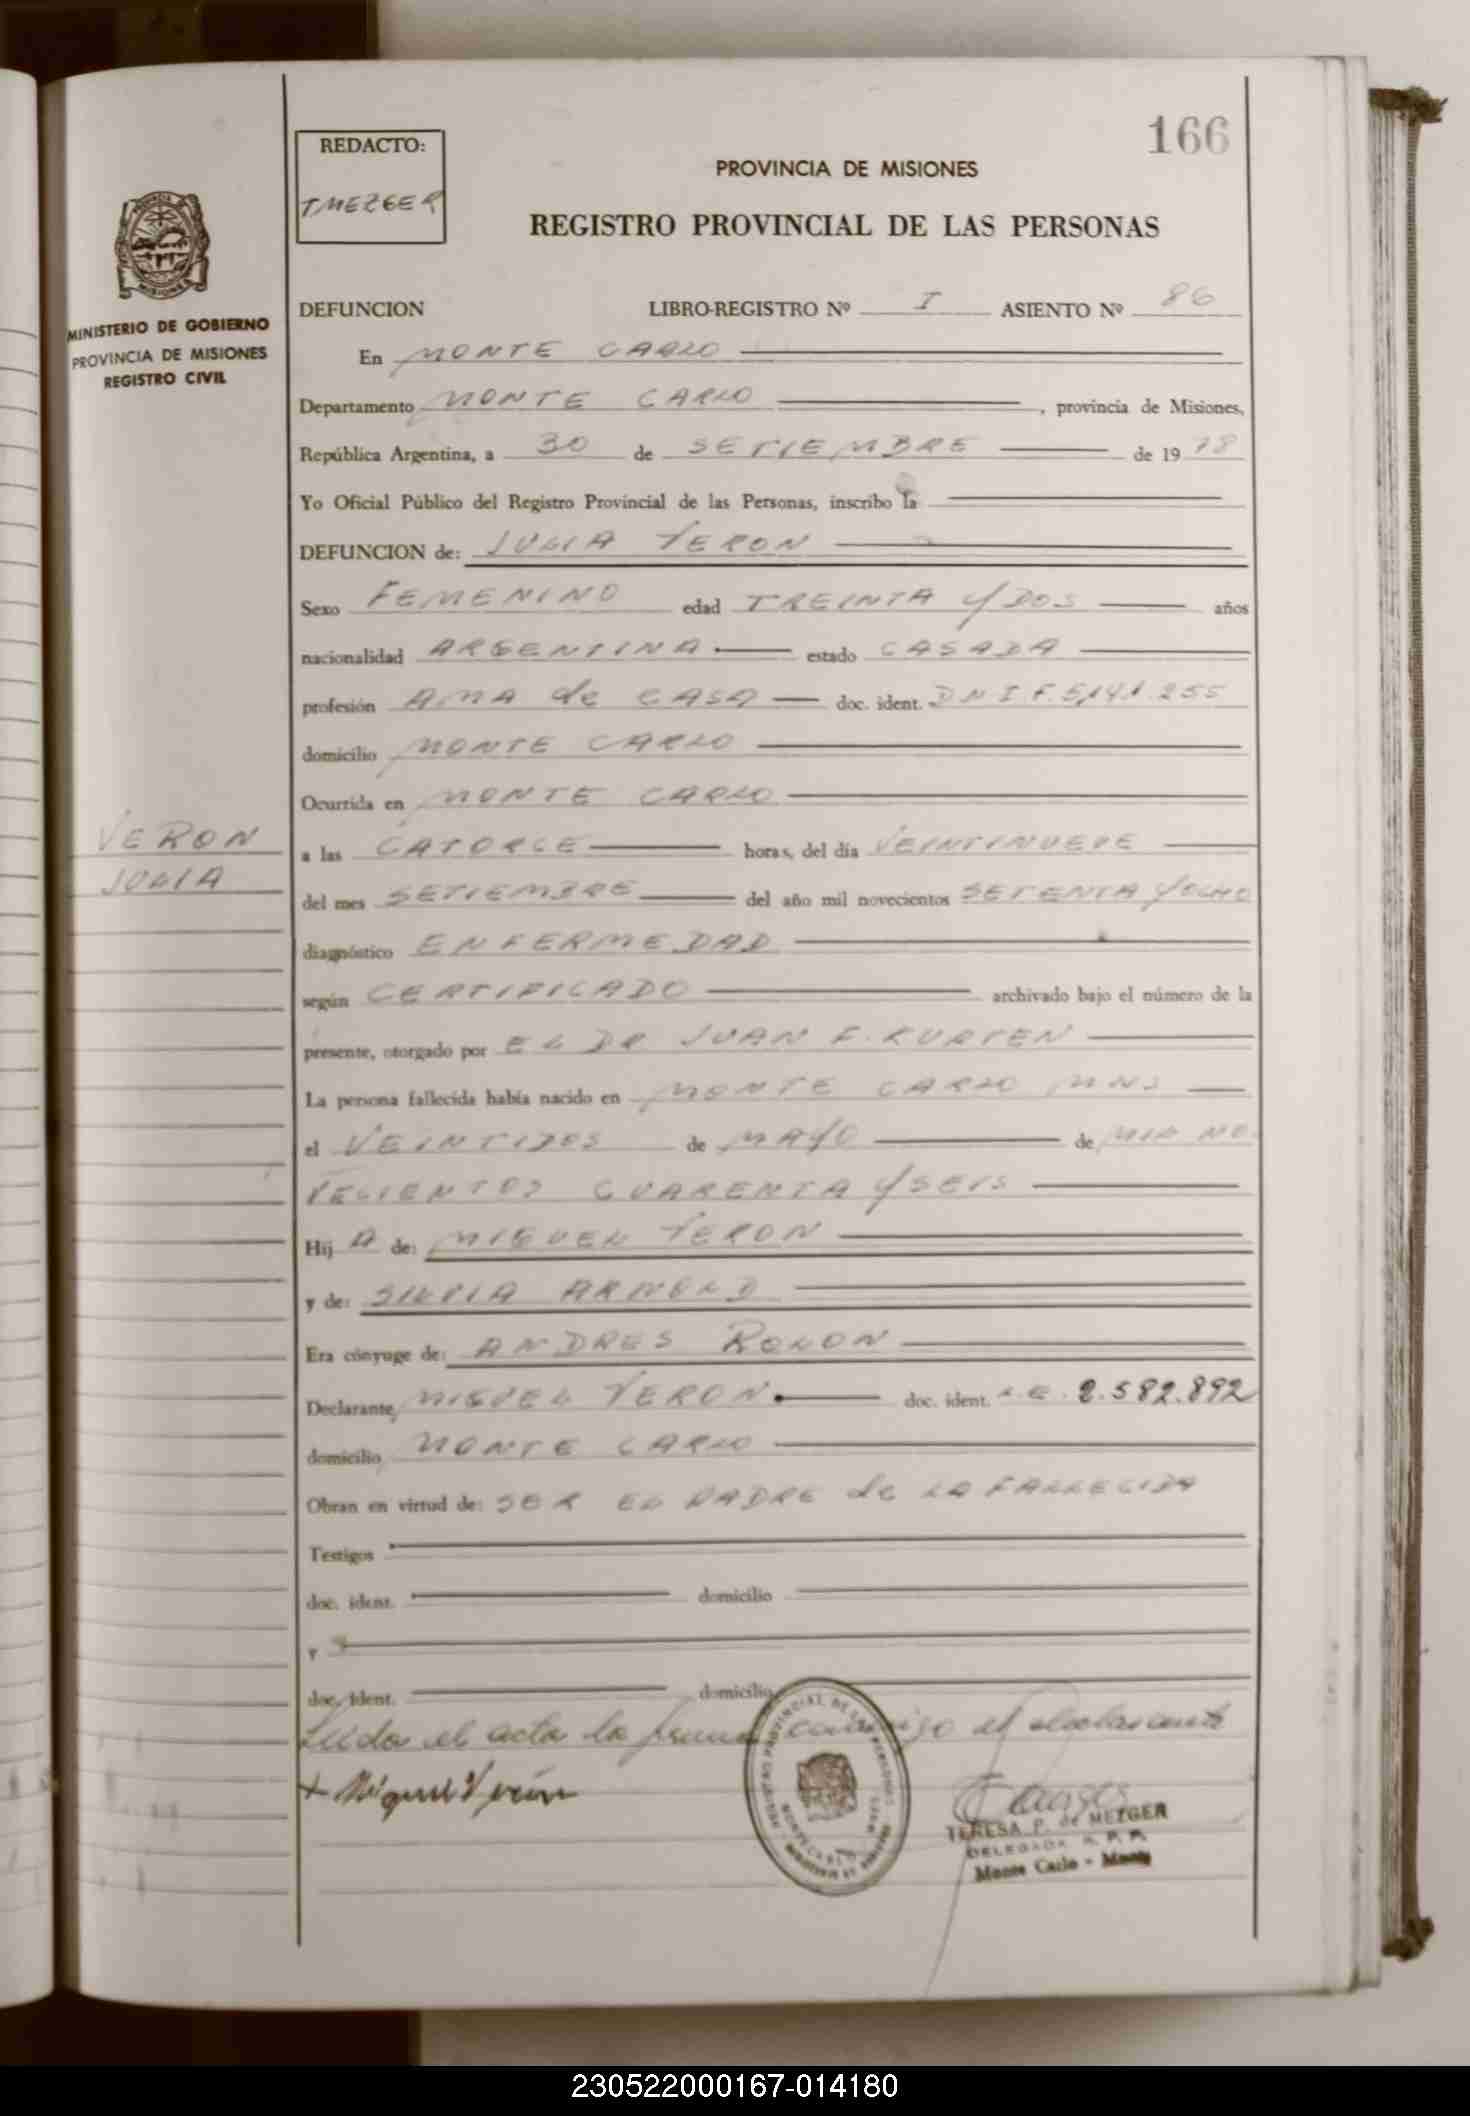 166
REDACTO:
TMEZGER
PROVINCIA DE MISIONES
REGISTRO PROVINCIAL DE LAS PERSONAS
MINISTERIO DE GOBIERNO
PROVINCIA DE MISIONES
REGISTRO CIVIL
DEFUNCION LIBRO-REGISTRO Nº I ASIENTO Nº 86
En MONTE CARLO
Departamento MONTE CARLO, provincia de Misiones,
República Argentina, a 30 de SETIEMBRE de 1978
Yo Oficial Público del Registro Provincial de las Personas, inscribo la
DEFUNCION de: JULIA VERON
Sexo FEMENINO edad TREINTA Y DOS años
nacionalidad ARGENTINA estado CASADA
profesión AMA de CASA doc. ident. DNI F. 5,141.255
domicilio MONTE CARLO
Ocurrida en MONTE CARLO
VERON
JULIA
a las CATORCE horas, del día VEINTINUEVE
del mes SETIEMBRE del año mil novecientos SETENTA Y OCHO
diagnóstico ENFERMEDAD
según CERTIFICADO archivado bajo el número de la
presente, otorgado por EL DR JUAN F. KURTEN
La persona fallecida había nacido en MONTE CARLO MNS
el VEINTIDOS de MAYO de MIL NO
VECIENTOS CUARENTA Y SEIS
Hij A de: MIGUEL VERON
y de: SILVIA ARNOLD
Era cónyuge de: ANDRES ROLON
Declarante MIGUEL VERON doc. ident. L.E. 2.582.892
domicilio MONTE CARLO
Obran en virtud de: SER EL PADRE de LA FALLECIDA
Testigos
doc. ident. domicilio
y
doc. ident. domicilio
Leida el acta la firma conmigo el declarante
+ Miguel Verón
TERESA P. de METGER
DELEGADA R. P. P.
Monte Carlo - Mnes
230522000167-014180